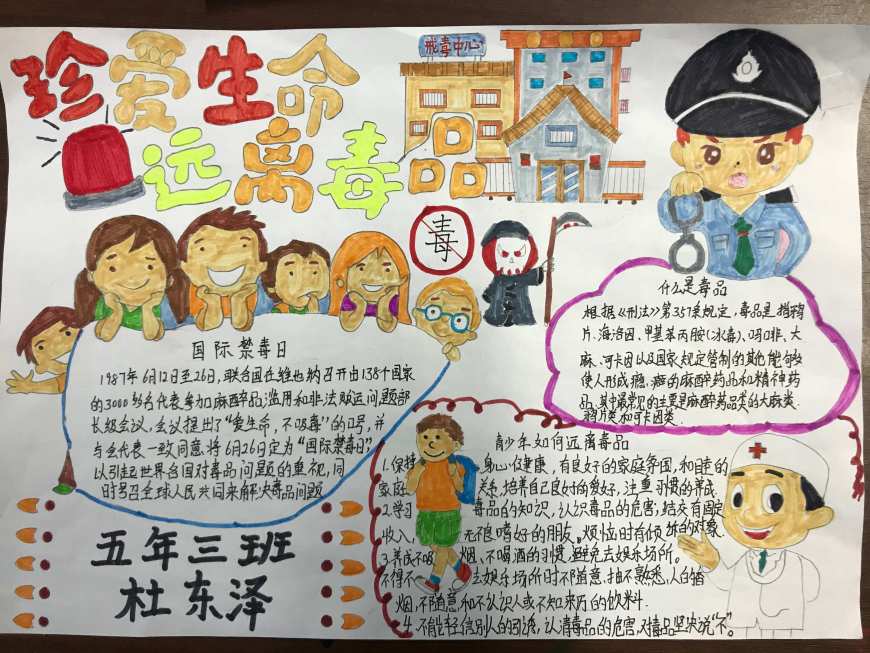 珍爱生命
远离毒品
戒毒中心
毒
国际禁毒日
1987年6月12日至26日,联合国在维也纳召开由138个国家
的3000多名代表参加麻醉品滥用和非法贩运问题部
长级会议,会议提出了“爱生命,不吸毒”的口号,并
与会代表一致同意将6月26日定为“国际禁毒日”,
以引起世界各国对毒品问题的重视,同
时号召全球人民共同来解决毒品问题
什么是毒品
根据《刑法》第357条规定,毒品是指鸦
片、海洛因、甲基苯丙胺(冰毒)、吗啡、大
麻、可卡因以及国家规定管制的其他能够
使人形成瘾癖的麻醉药品和精神药
品,其中最常见的主要是麻醉药品类的大麻类、
鸦片类和可卡因类.
青少年如何远离毒品
1.保持身心健康,有良好的家庭氛围,和自己的
家庭关系,培养自己良好的爱好,注重习惯的养成
2.学习毒品的知识,认识毒品的危害,结交有固定
收入,无不良嗜好的朋友,烦恼时有倾诉的对象.
3.养成不吸烟、不喝酒的习惯,避免去娱乐场所。
不得不去娱乐场所时不随意,抽不熟悉人的香
烟,不随意和不认识人或不知来历的饮料.
4.不能轻信别人的引诱,认清毒品的危害,对毒品坚决说“不”。
五年三班
杜东泽